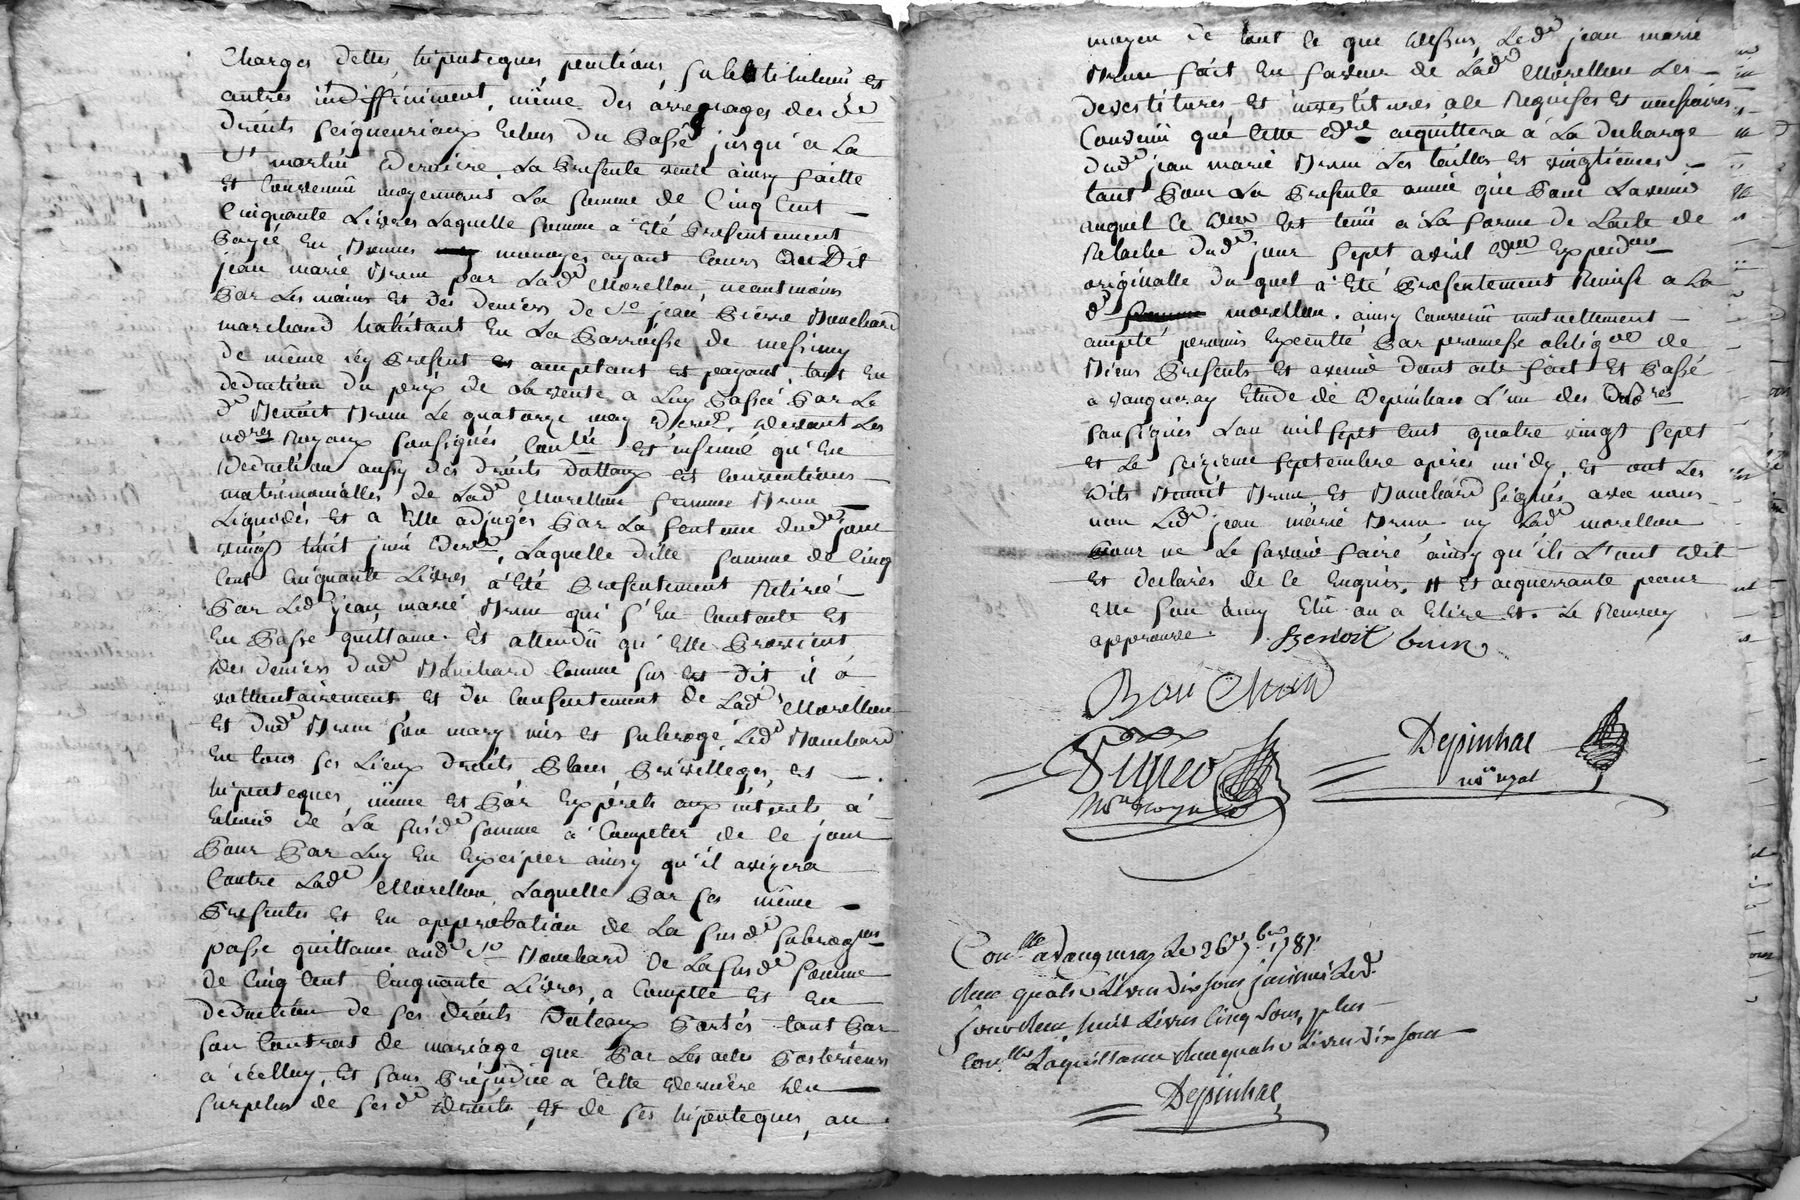 Charges dettes hipoteques pentions, substitutions et
autres indiffiniment, même des arrerages des
droits seigneuriaux echus du passé jusqu'a la
St martin derniere. La presente vente ainsy faitte
et convenuë moyennant la somme de cinq cent
cinquante Livres laquelle somme a été presentement
payée en bonnes monoyes ayant cours audit
jean marie Brun par Lade Morellon, neantmoins
par les mains et des deniers de sr jean pierre Bouchard
marchand habitant en la parroisse de messimy
de même icy present et acceptant et payant, tant en
deduction du prix de la vente a luy passée par le
d. Benoit Brun le quatorze may dernr. devant les
nores Royaux soussignés et insinué qu'en
deduction aussy des droits dottaux et conventions
matrimonialles de lade Morellon femme Brun
Liquidés et a elle adjugés par la sentence dud. jour
vingt huit juin dernr, laquelle ditte somme de cinq
cent cinquante Livres a été presentement Retirée
par led. jean marie Brun qui s'en contente et
en passe quittance. Et attendu qu'elle provient
des deniers dud. Bouchard comme sus est dit il a
vollontairement et du consentement de lade Morellon
et dud. Brun son mary mis et subrogé led. Bouchard
en tous ses lieux droits places privilleges, et
hipoteques, même et par exprès aux interets a
echoir de la susde somme a compter de ce jour
pour par luy en exciper ainsy qu'il avizera
contre lade Morellon, laquelle par ces même
presentes et en approbation de la susde subrogon
passe quittance aud. sr Bouchard de la susde somme
de cinq cent cinquante Livres, a compte et en
deduction de ses droits Doteaux portés tant par
son contrat de mariage que par les actes posterieurs
a icelluy, et sans préjudice a cette derniere du
surplus de sesd. droits, et de ses hipoteques, au
moyen de tout ce que dessus, led. jean marie
Brun fait en faveur de lade Morellon les
devestitures et investitures a ce Requises et necessaires
Convenu que cette dre acquittera a la decharge
dud. jean marie Brun les tailles et vingtiemes
tant pour la presente année que pour lavenir
auquel ce est tenu a la forme de l'acte de
Relache dud. jour sept avril der Expedon
originalle du quel a été presentement Remise a la
d. morellon. ainsy convenu mutuellement
accepté promis executté par promesse obligon de
Biens presents et avenir dont acte fait et passé
a vaugneray Etude de Depinhac l'un des nores
soussignés L'an mil sept cent quatre vingt sept
et le seizieme septembre après midy, et ont les
dits Benoit Brun et Bouchard signés avec nous
non led. jean marie Brun ny lade morellon
pour ne le savoir faire ainsy qu'ils l'ont dit
et declarés de ce enquis. # et acquerrante pour
elle son amy elû ou a elire et. Le Renvoy
approuvé. Benoit brun
Bouchard
Depinhac
nore royal
nore royal
Conlle a vaugneray le 26e 7bre 1787
Reçu quatre Livres dix sous led.
sous Reçu huit Livres cinq sous, plus
conlle la quittance Reçu quatre Livres dix sous
Depinhac